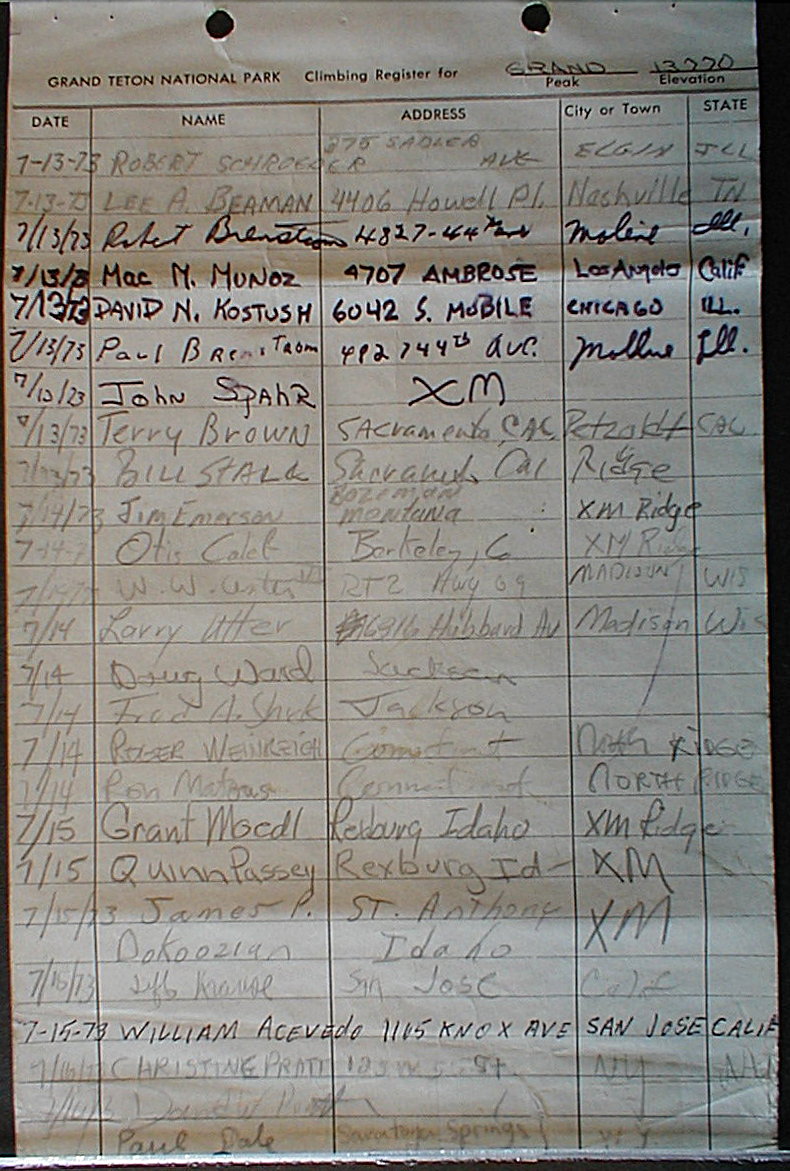 GRAND TETON NATIONAL PARK Climbing Register for GRAND 13770
Peak Elevation
DATE NAME ADDRESS City or Town STATE
275 SADLER
7-13-73 ROBERT SCHROEDER AVE ELGIN ILL
7-13-73 LEE A. BEAMAN 4406 Howell Pl. Nashville TN
7/13/73 Robert Brenstrom 4827-44th Moline Ill.
7/13/73 MAC M. MUNOZ 4707 AMBROSE Los Angeles Calif
7/13/73 DAVID N. KOSTUSH 6042 S. MOBILE CHICAGO ILL.
7/13/73 Paul Brenstrom 482744th ave. Moline Ill.
7/13/73 JOHN SPAHR XM
7/13/73 Terry Brown SACramento, CAL Petzoldt CAL
BILL STALK Cal Ridge
Bozeman
7/14/73 Jim Emerson montana XM Ridge
7-14-7 Otis Berkeley, C XM Ridge
W. W. RT 2 Hwy 69 MADISON WIS
7/14 Larry Utter 6916 Hibbard Av Madison Wis
7/14 Doug Ward Jackson
7/14 Fred A. Jackson
7/14 ROGER WEINREICH North RIDGE
7/14 Ron NORTH RIDGE
7/15 Grant Moedl Rexburg Idaho XM Ridge
7/15 Quinn Passey Rexburg Id- XM
7/15/73 James P. ST. Anthony XM
Dokoozian Idaho
7/15/73 Jeff Krause San Jose Calif
7-15-73 WILLIAM ACEVEDO 1165 KNOX AVE SAN JOSE CALIF
CHRISTINE PRATT NY
David W.
Paul Dale Saratoga Springs NY